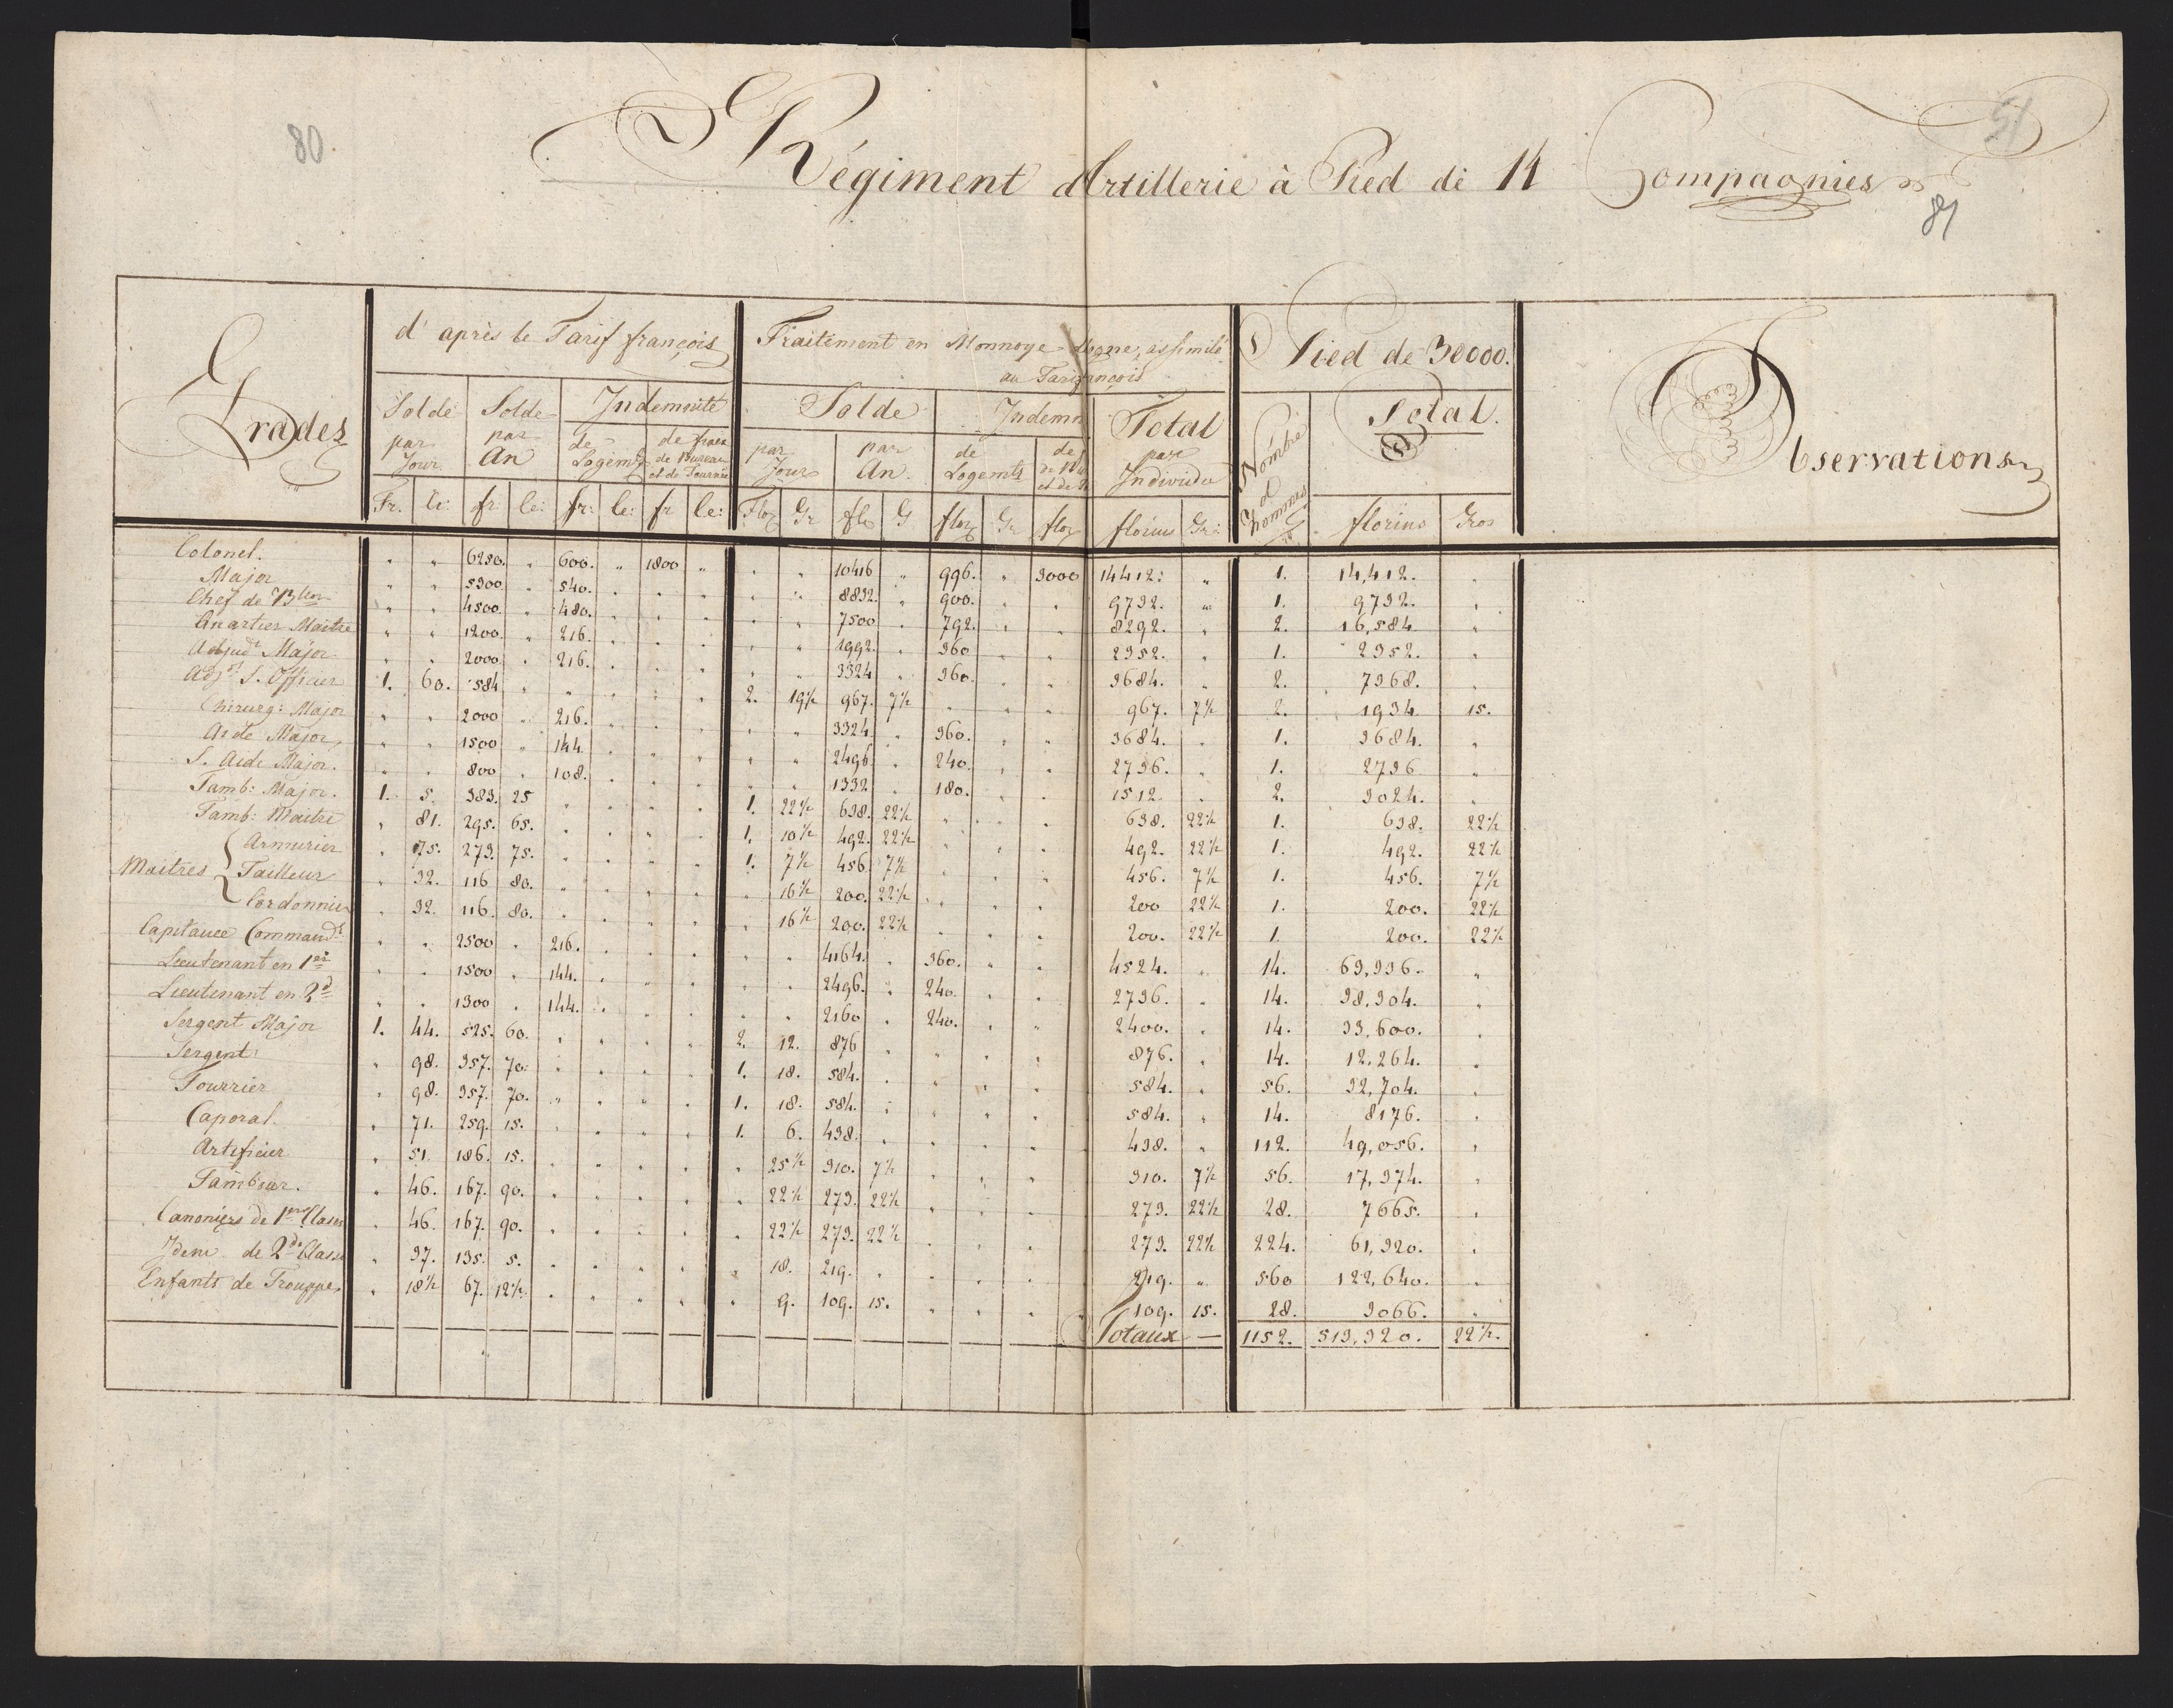 80.
51
Régiment d'Artillerie à Pied de 14 Compagnies
81
Grades
d'après le Tarif françois
Traitement en Monnoye assimilé
au Tarif françois
Pied de 30000.
Observations
Solde par Jour | Solde par An | Indemnité de Logemts | de frais de Bureau et de Tournée
Solde par Jour | par An. | Indemn de Logemts | de | Total par Individu
Nombre d'hommes | Total.
Fr. | Ce: | fr: | Ce: | fr: | Ce: | fr | Ce: | Flor | Gr | flo | G | flor | Gr | flor | florins | Gr: | florins | Gros
Colonel. | " | " | 6250. | " | 600. | " | 1800 | " | " | " | 10416 | " | 996. | " | 3000 | 14412: | " | 1. | 14,412. | "
Major | " | " | 5300. | " | 540. | " | " | " | " | " | 8832. | " | 900. | " | " | 9732. | " | 1. | 9732. | "
Chef de Bllon | " | " | 4500. | " | 480. | " | " | " | " | " | 7500 | " | 792. | " | " | 8292. | " | 2. | 16,584 | "
Quartier Maitre | " | " | 1200. | " | 216. | " | " | " | " | " | 1992. | " | 360 | " | " | 2352. | " | 1. | 2352. | "
Adjudt Major | " | " | 2000. | " | 216. | " | " | " | " | " | 3324 | " | 360. | " | " | 3684. | " | 2. | 7368. | "
Adjt S. Officier | 1. | 60. | 584 | " | " | " | " | " | 2. | 19½ | 967. | 7½ | " | " | " | 967. | 7½ | 2. | 1934. | 15.
Chirurg: Major | " | " | 2000 | " | 216. | " | " | " | " | " | 3324. | " | 360. | " | " | 3684. | " | 1. | 3684. | "
Aide Major | " | " | 1500 | " | 144. | " | " | " | " | " | 2496. | " | 240. | " | " | 2736. | " | 1. | 2736 | "
S. Aide Major. | " | " | 800 | " | 108. | " | " | " | " | " | 1332. | " | 180. | " | " | 1512. | " | 2. | 3024. | "
Tamb: Major. | 1. | 5. | 383. | 25 | " | " | " | " | 1. | 22½ | 638. | 22½ | " | " | " | 638. | 22½ | 1. | 638. | 22½
Tamb: Maitre | " | 81. | 295. | 65. | " | " | " | " | 1. | 10½ | 492. | 22½ | " | " | " | 492. | 22½ | 1. | 492. | 22½
Maitres { Armurier | " | 75. | 273. | 75. | " | " | " | " | 1. | 7½ | 456. | 7½ | " | " | " | 456. | 7½ | 1. | 456. | 7½
Tailleur | " | 32. | 116 | 80. | " | " | " | " | " | 16½ | 200. | 22½ | " | " | " | 200 | 22½ | 1. | 200. | 22½
Cordonnier | " | 32. | 116. | 80. | " | " | " | " | " | 16½ | 200. | 22½ | " | " | " | 200. | 22½ | 1. | 200. | 22½
Capitauee Commandt | " | " | 2500 | " | 216. | " | " | " | " | " | 4164. | " | 360. | " | " | 4524. | " | 14. | 63,336. | "
Lieutenant en 1er | " | " | 1500 | " | 144. | " | " | " | " | " | 2496. | " | 240. | " | " | 2736. | " | 14. | 38,304. | "
Lieutenant en 2d | " | " | 1300 | " | 144. | " | " | " | " | " | 2160 | " | 240. | " | " | 2400. | " | 14. | 33,600. | "
Sergent Major | 1. | 44. | 525. | 60. | " | " | " | " | 2. | 12. | 876 | " | " | " | " | 876. | " | 14. | 12,264. | "
Sergent | " | 98. | 357. | 70. | " | " | " | " | 1. | 18. | 584. | " | " | " | " | 584. | " | 56. | 32,704. | "
Fourrier | " | 98. | 357. | 70. | " | " | " | " | 1. | 18. | 584. | " | " | " | " | 584. | " | 14. | 8176. | "
Caporal. | " | 71. | 259. | 15. | " | " | " | " | 1. | 6. | 438. | " | " | " | " | 438. | " | 112. | 49,056. | "
Artificier | " | 51. | 186. | 15. | " | " | " | " | " | 25½ | 310. | 7½ | " | " | " | 310. | 7½ | 56. | 17,374. | "
Tambour. | " | 46. | 167. | 90. | " | " | " | " | " | 22½ | 273. | 22½ | " | " | " | 273. | 22½ | 28. | 7665. | "
Canoniers de 1ere Classe | " | 46. | 167. | 90. | " | " | " | " | " | 22½ | 273. | 22½ | " | " | " | 273. | 22½ | 224. | 61,320. | "
Idem de 2de Classe | " | 37. | 135. | 5. | " | " | " | " | " | 18. | 219. | " | " | " | " | 219. | " | 560 | 122,640. | "
Enfants de Trouppe | " | 18½ | 67. | 12½ | " | " | " | " | " | 9. | 109. | 15. | " | " | " | 109. | 15. | 28. | 3066. | "
Totaux — | 1152. | 513,320. | 22½.